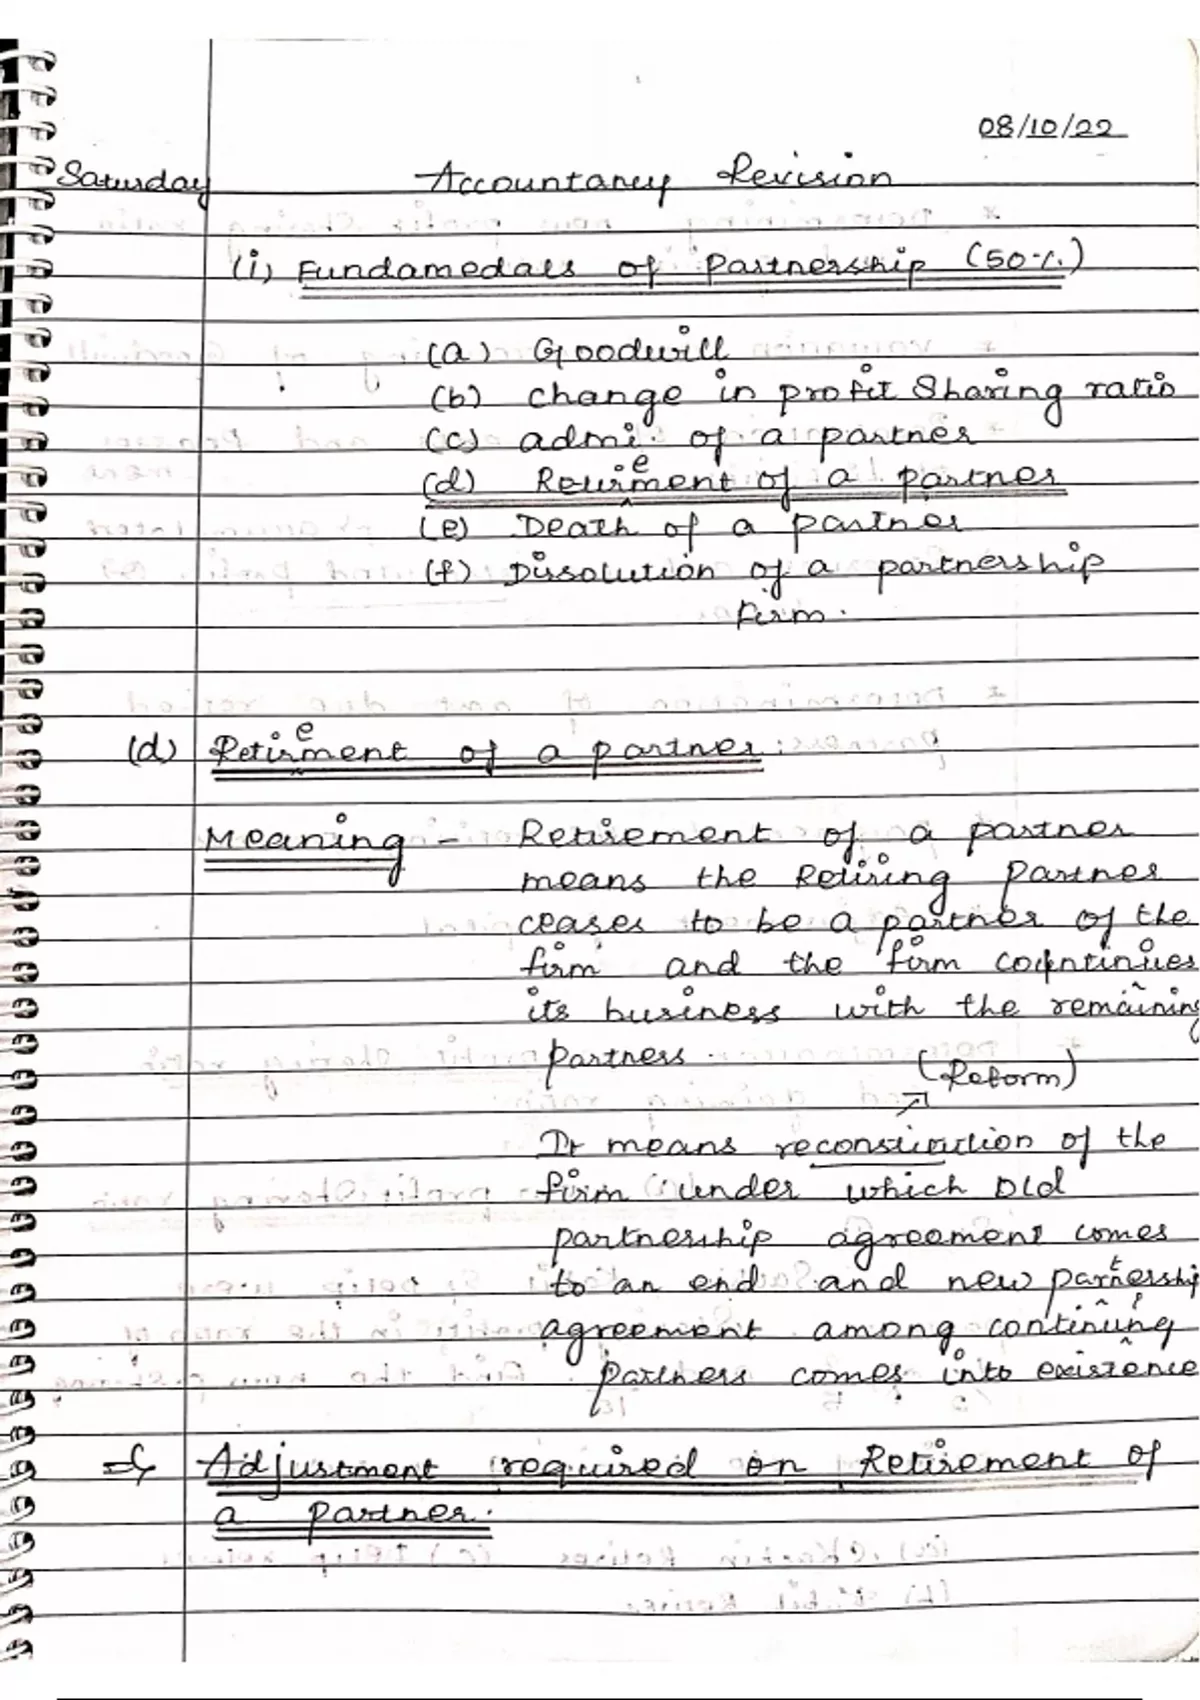 08/10/22
Saturday Accountancy Revision
(i) Fundamedals of Partnership (50%)
(a) Goodwill
(b) change in profit Sharing ratio
(c) admi. of a partner
(d) Retirement of a partner
(e) Death of a partner
(f) Dissolution of a partnership
firm.
(d) Retirement of a partner:
Meaning - Retirement of a partner
means the Retiring Partner
ceases to be a partner of the
firm and the firm continues
its business with the remaining
partners.
(Reform)
It means reconstitution of the
firm under which Old
partnership agreement comes
to an end and new partnership
agreement among continuing
partners comes into existence
⇒ Adjustment required on Retirement of
a partner.